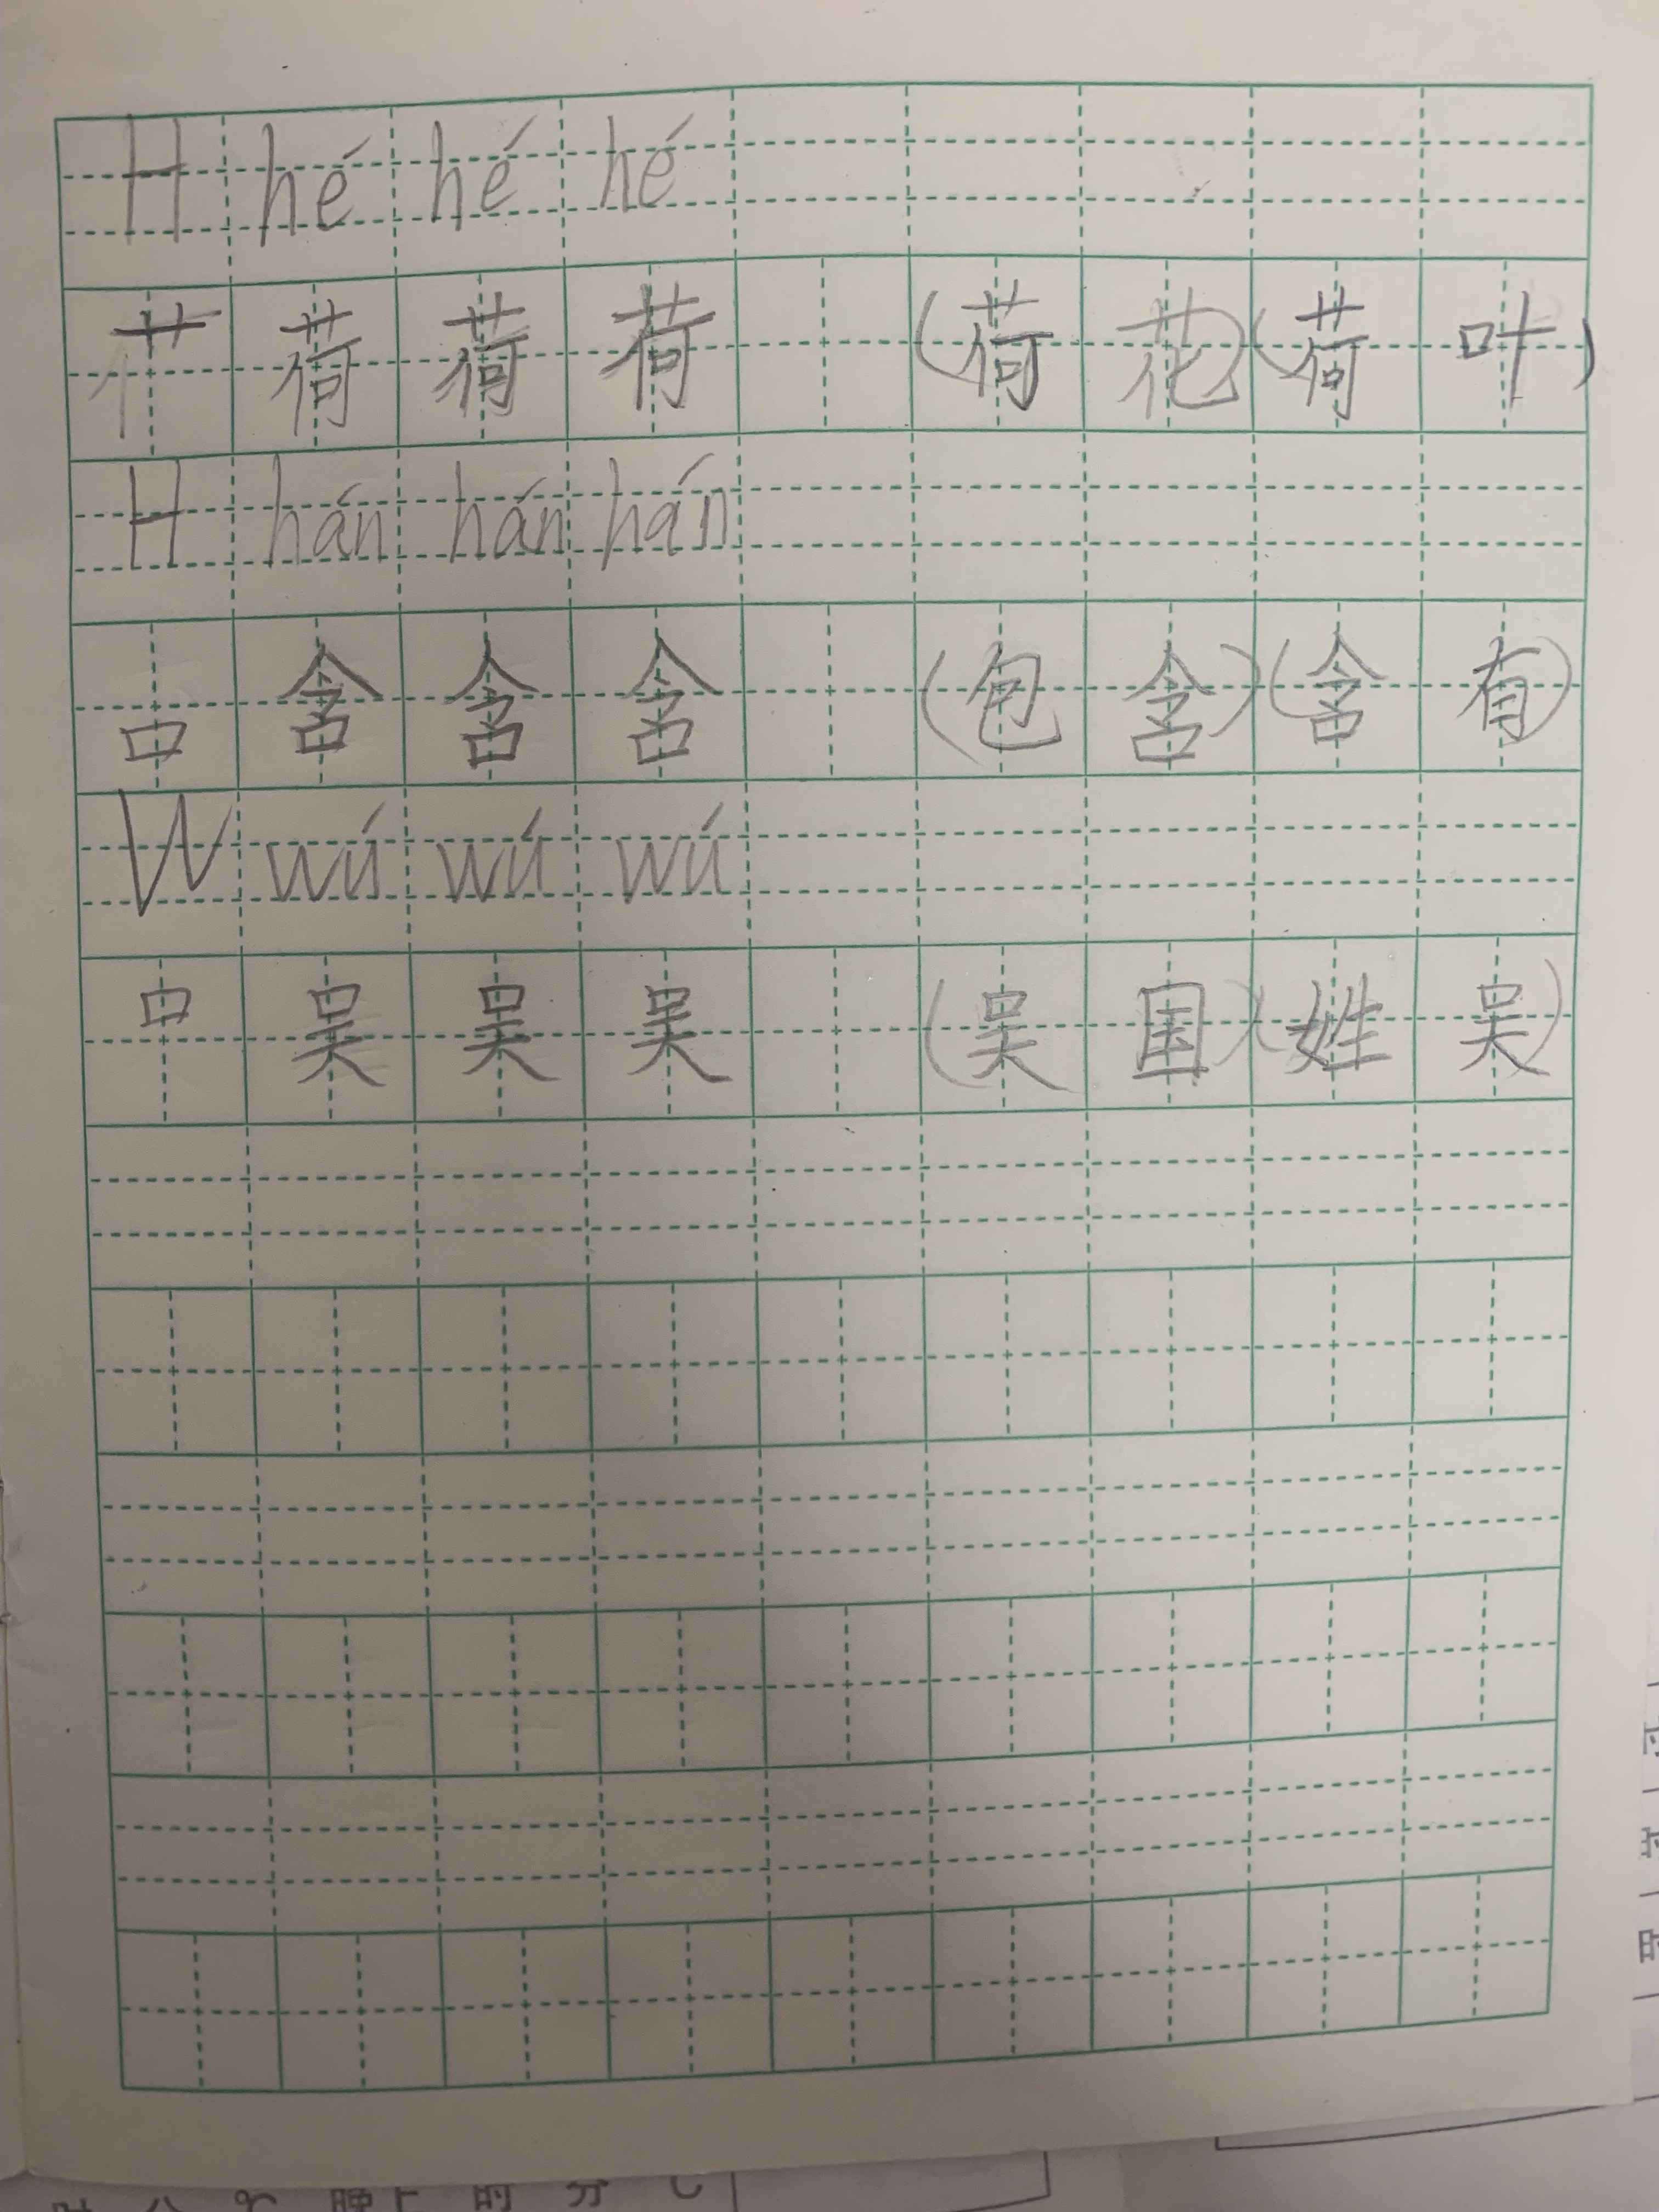 H hé hé hé
艹 荷 荷 荷 (荷花)(荷叶)
H hán hán hán
口 含 含 含 (包含)(含有)
W wú wú wú
口 吴 吴 吴 (吴国)(姓吴)
时
晚上 时 分